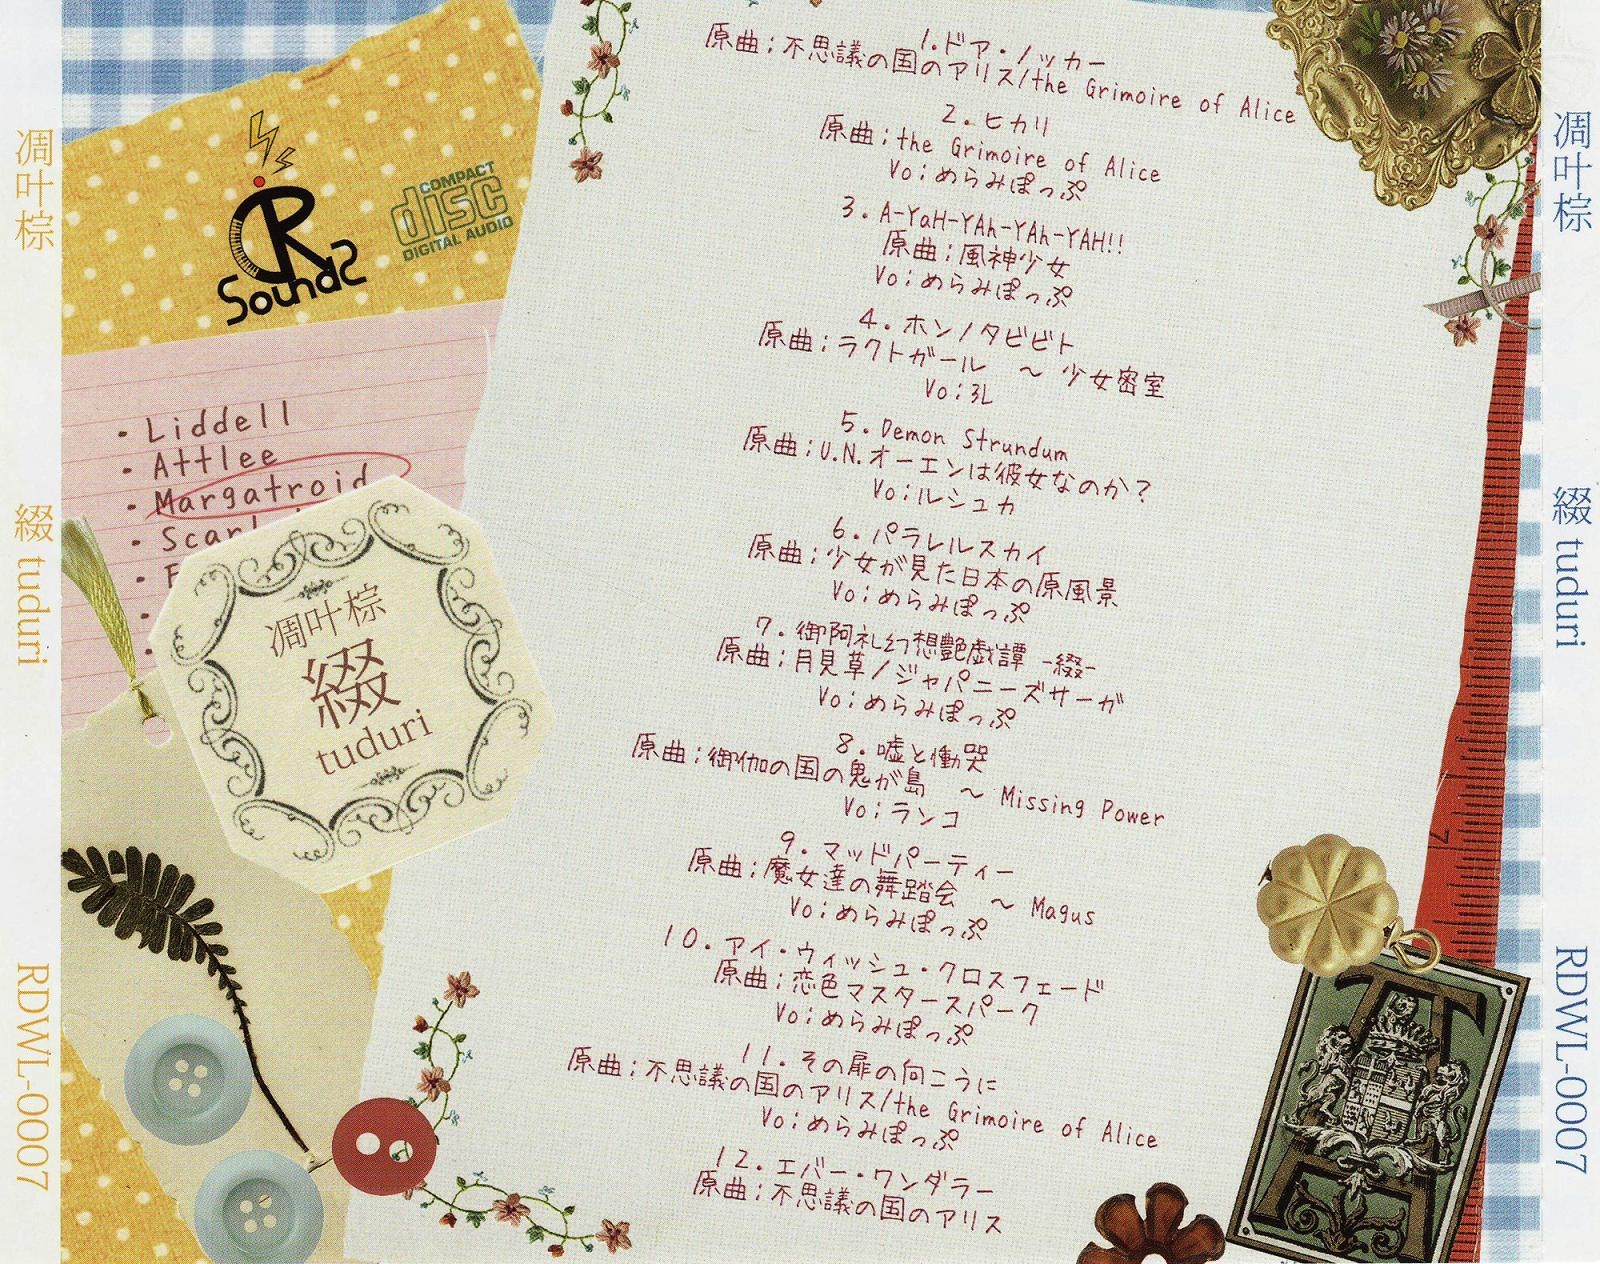 凋叶棕
綴 tuduri
RDWL-0007
RD Sounds
COMPACT
disc
DIGITAL AUDIO
・Liddell
・Attlee
・Margatroid
凋叶棕
綴
tuduri
1.ドア・ノッカー
原曲:不思議の国のアリス/the Grimoire of Alice
2.ヒカリ
原曲:the Grimoire of Alice
Vo:めらみぽっぷ
3.A-YaH-YAh-YAh-YAH!!
原曲:風神少女
Vo:めらみぽっぷ
4.ホンノタビビト
原曲:ラクトガール ~ 少女密室
Vo:3L
5.Demon Strundum
原曲:U.N.オーエンは彼女なのか?
Vo:ルシュカ
6.パラレルスカイ
原曲:少女が見た日本の原風景
Vo:めらみぽっぷ
7.御阿礼幻想艶戯譚 -綴-
原曲:月見草/ジャパニーズサーガ
Vo:めらみぽっぷ
8.嘘と慟哭
原曲:御伽の国の鬼が島 ~ Missing Power
Vo:ランコ
9.マッドパーティー
原曲:魔女達の舞踏会 ~ Magus
Vo:めらみぽっぷ
10.アイ・ウィッシュ・クロスフェード
原曲:恋色マスタースパーク
Vo:めらみぽっぷ
11.その扉の向こうに
原曲:不思議の国のアリス/the Grimoire of Alice
Vo:めらみぽっぷ
12.エバー・ワンダラー
原曲:不思議の国のアリス
7
凋叶棕
綴 tuduri
RDWL-0007